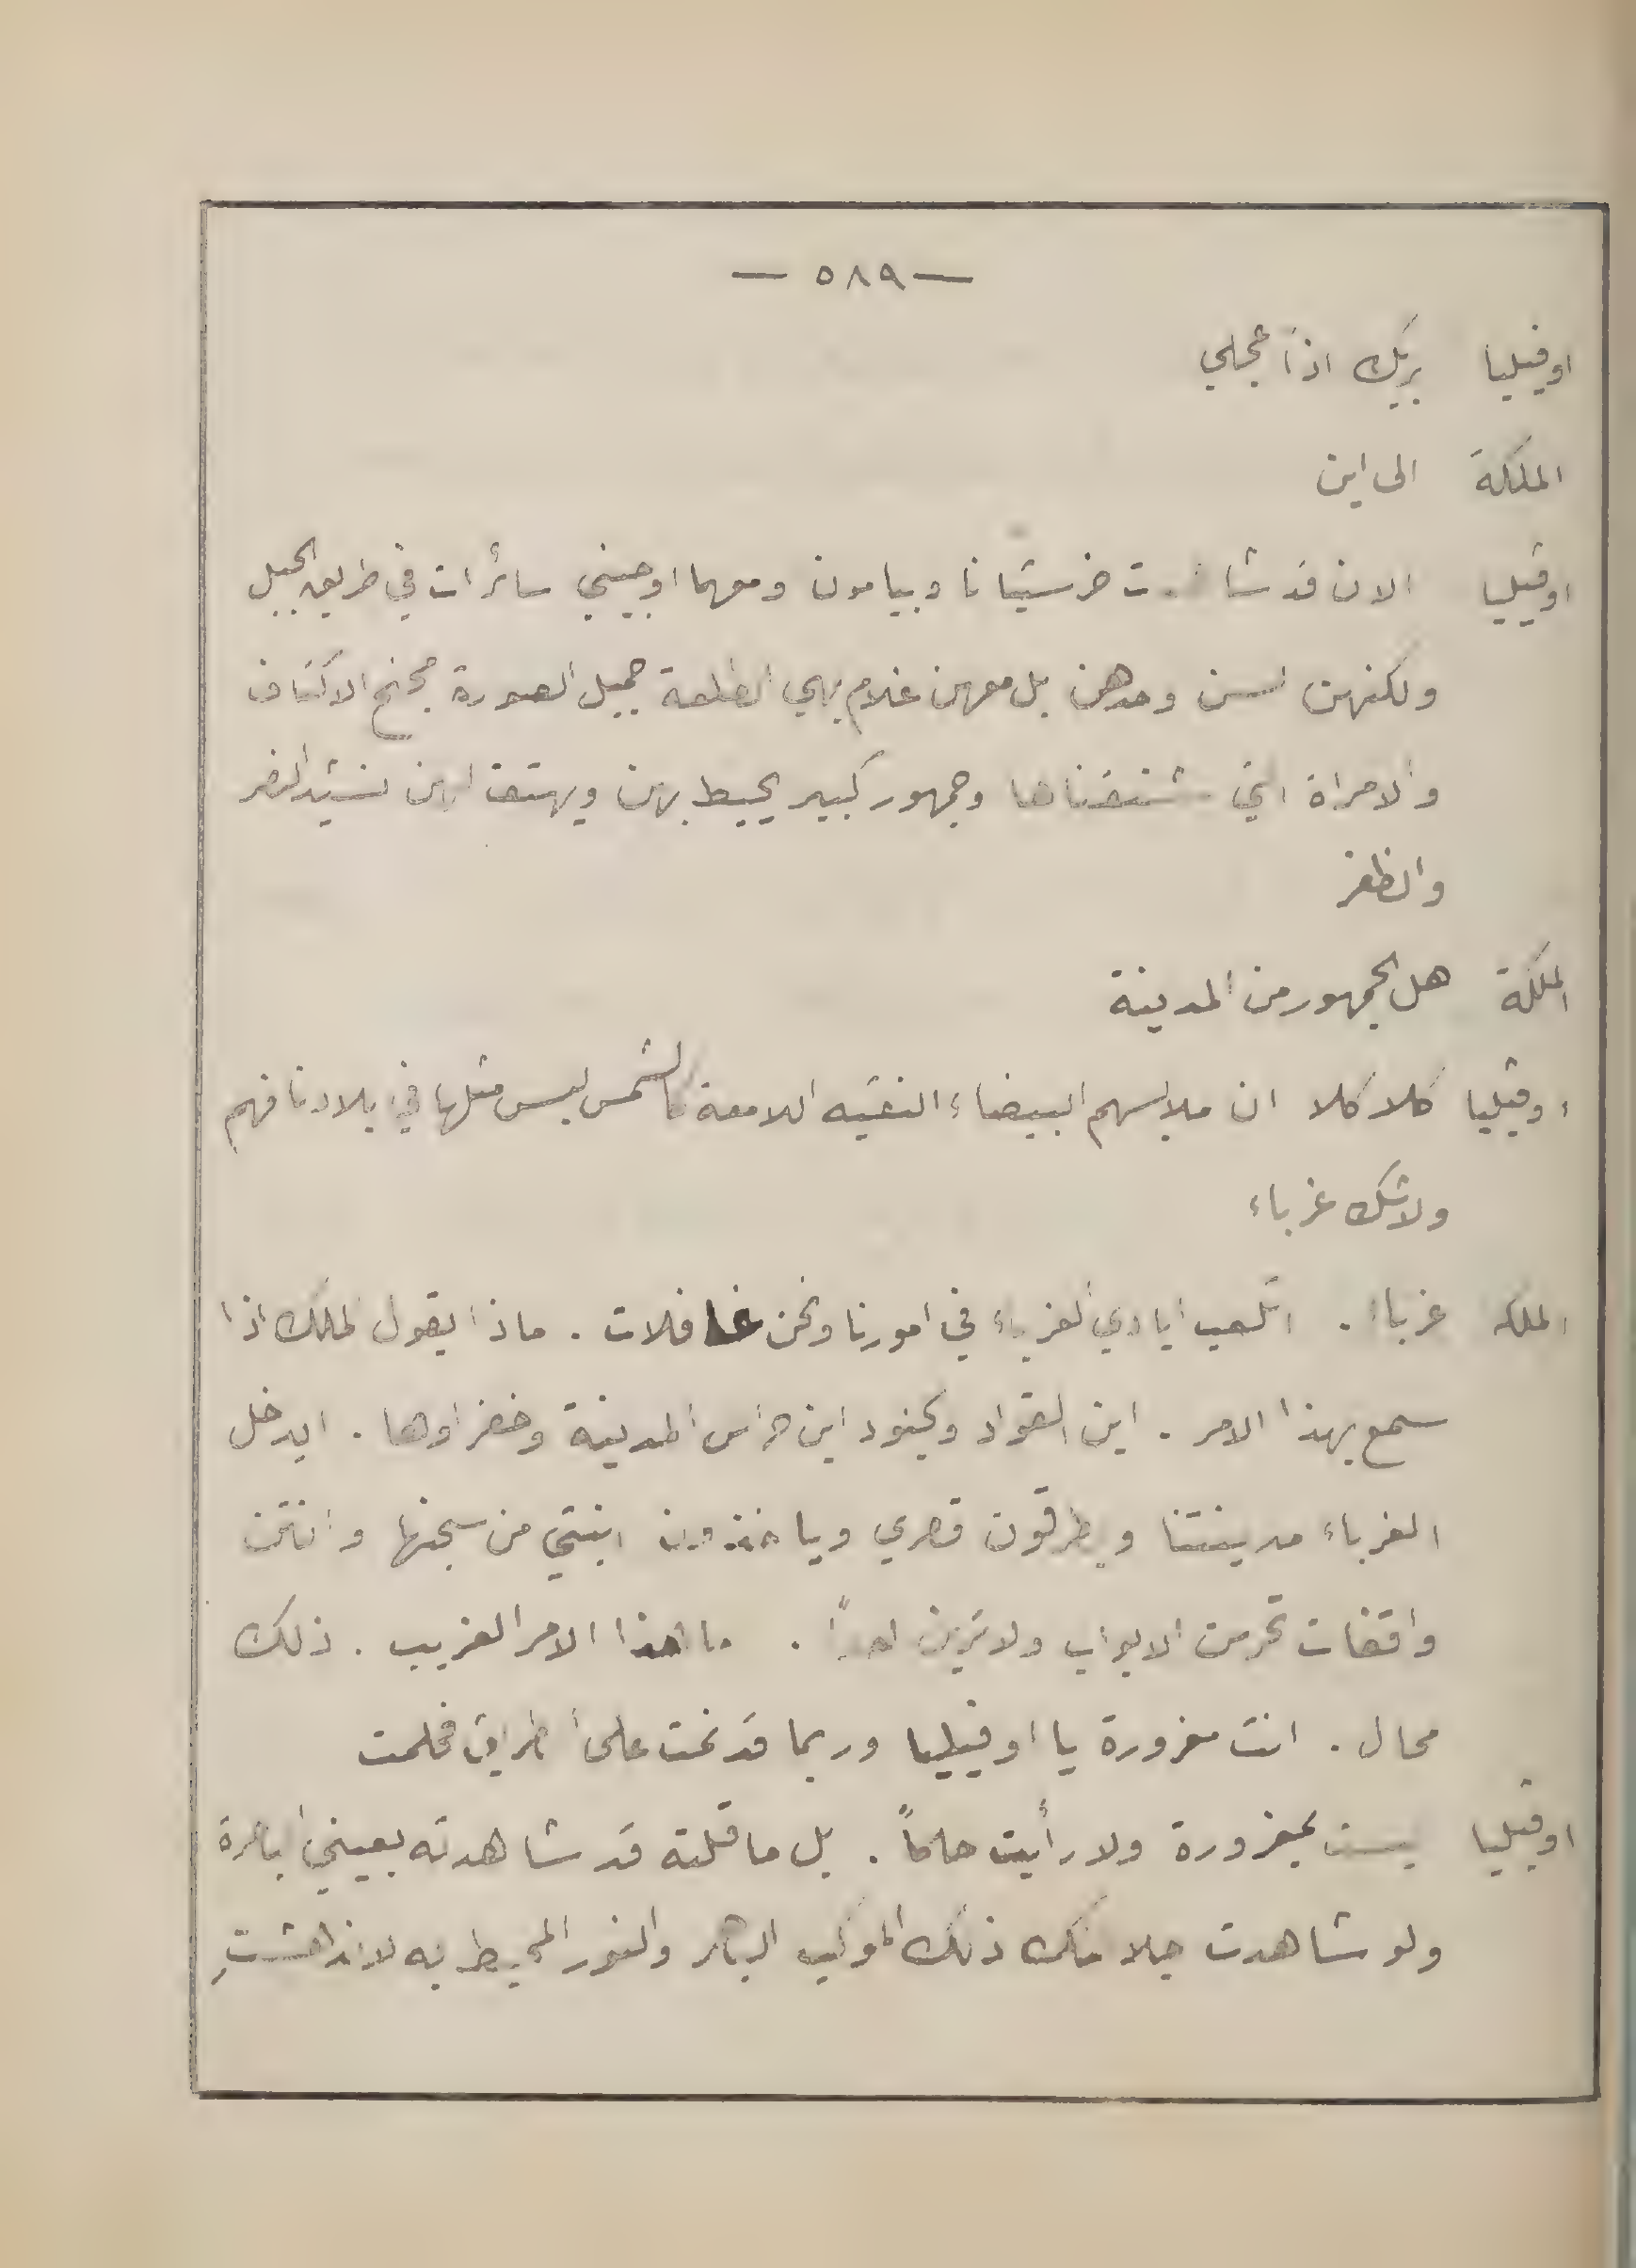 — ٥٨٩ —
اوفيليا بربك اذاً عجلي
الملكة الى اين
اوفيليا الان قد شاهدت خرستيانا وبيامون ومعهما اوجيني سائرات في طريق الجبل
ولكنهن لسن وحدهن بل معهن غلام بهي الطلعة جميل الصورة مجنح الاكتاف
والامراة التي شنقناها وجمهور كبير يحيط بهن ويهتف لهن نشيد النصر
والظفر
الملكة هل الجمهور من المدينة
اوفيليا كلا كلا ان ملابسهم البيضاء النقيه اللامعة كالشمس ليس مثلها في بلادنا فهم
ولا شك غرباء
الملكة غرباء . اتلعب ايادي الغرباء في امورنا ونحن غافلات . ماذا يقول الملك اذا
سمع بهذا الامر . اين القواد والجنود اين حراس المدينة وخفراوها . ايدخل
الغرباء مدينتنا ويطرقون قصري وياخذون ابنتي من سجنها وانتن
واقفات تحرسن الابواب ولا ترين احداً . ما هذا الامر الغريب . ذلك
محال . انت مغرورة يا اوفيليا وربما قد نمت على الطريق فحلمت
اوفيليا لست بمغرورة ولا رأيت حلماً . بل ما قلته قد شاهدته بعيني الباصرة
ولو شاهدت جلالتك ذلك الموكب الباهر والنور المحيط به لاندهشتِ